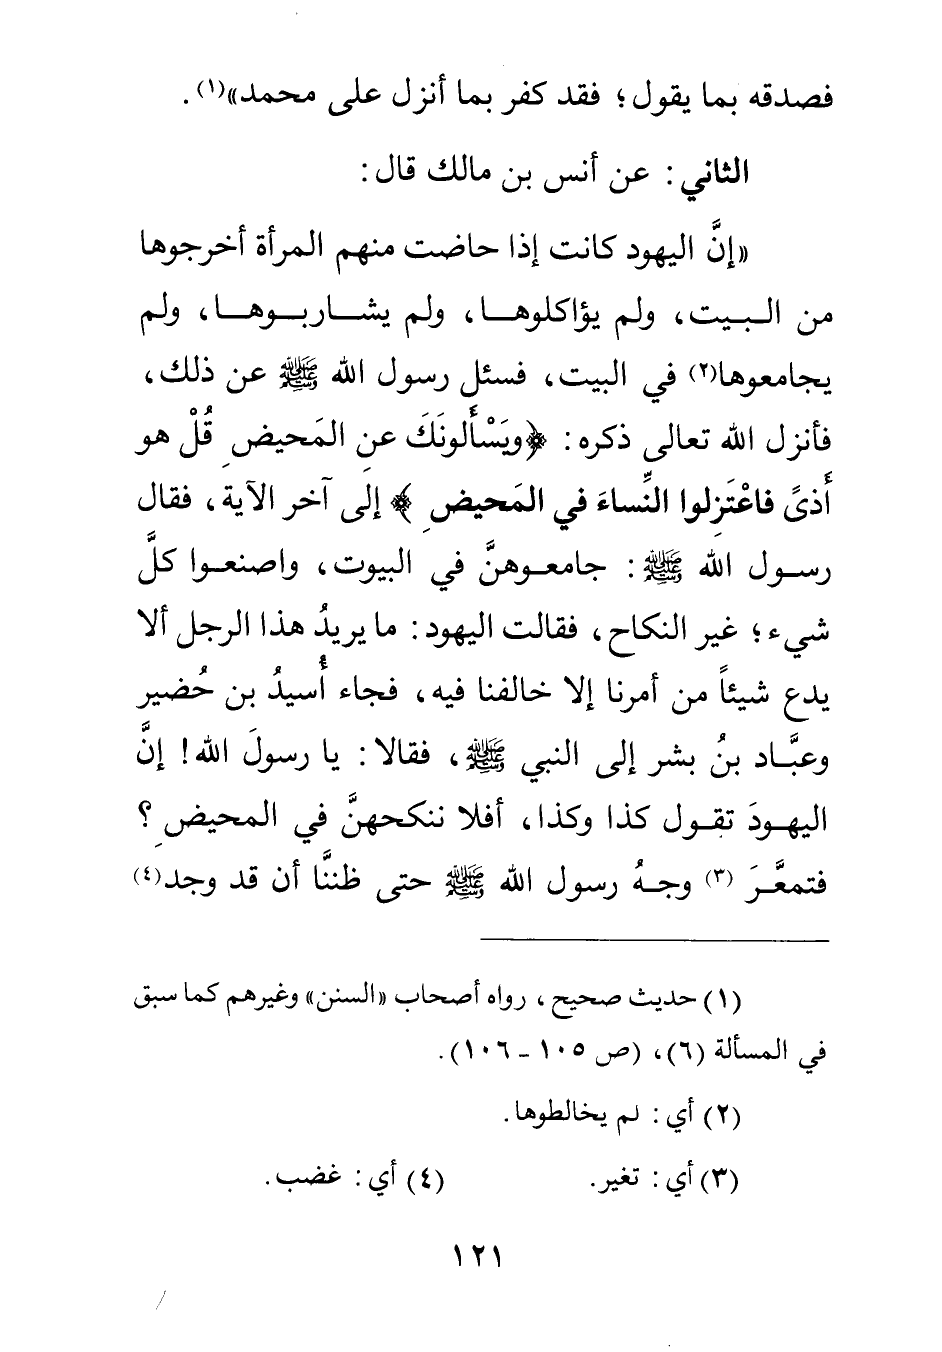 فصدقه بما يقول؛ فقد كفر بما أنزل على محمد»(١).
الثاني: عن أنس بن مالك قال:
«إنَّ اليهود كانت إذا حاضت منهم المرأة أخرجوها
من البيت، ولم يؤاكلوها، ولم يشاربوها، ولم
يجامعوها(٢) في البيت، فسئل رسول الله ﷺ عن ذلك،
فأنزل الله تعالى ذكره: ﴿ويَسْأَلونَكَ عنِ المَحيضِ قُلْ هو
أَذىً فاعْتَزِلوا النِّساءَ في المَحيضِ﴾ إلى آخر الآية، فقال
رسول الله ﷺ: جامعوهنَّ في البيوت، واصنعوا كلَّ
شيء؛ غير النكاح، فقالت اليهود: ما يريدُ هذا الرجل ألا
يدع شيئاً من أمرنا إلا خالفنا فيه، فجاء أُسيدُ بن حُضير
وعبَّاد بنُ بشر إلى النبي ﷺ، فقالا: يا رسولَ الله! إنَّ
اليهودَ تقول كذا وكذا، أفلا ننكحهنَّ في المحيضِ؟
فتمعَّرَ (٣) وجهُ رسول الله ﷺ حتى ظننَّا أن قد وجد(٤)
(١) حديث صحيح، رواه أصحاب «السنن» وغيرهم كما سبق
في المسألة (٦)، (ص ١٠٥ - ١٠٦).
(٢) أي: لم يخالطوها.
(٣) أي: تغير. (٤) أي: غضب.
١٢١